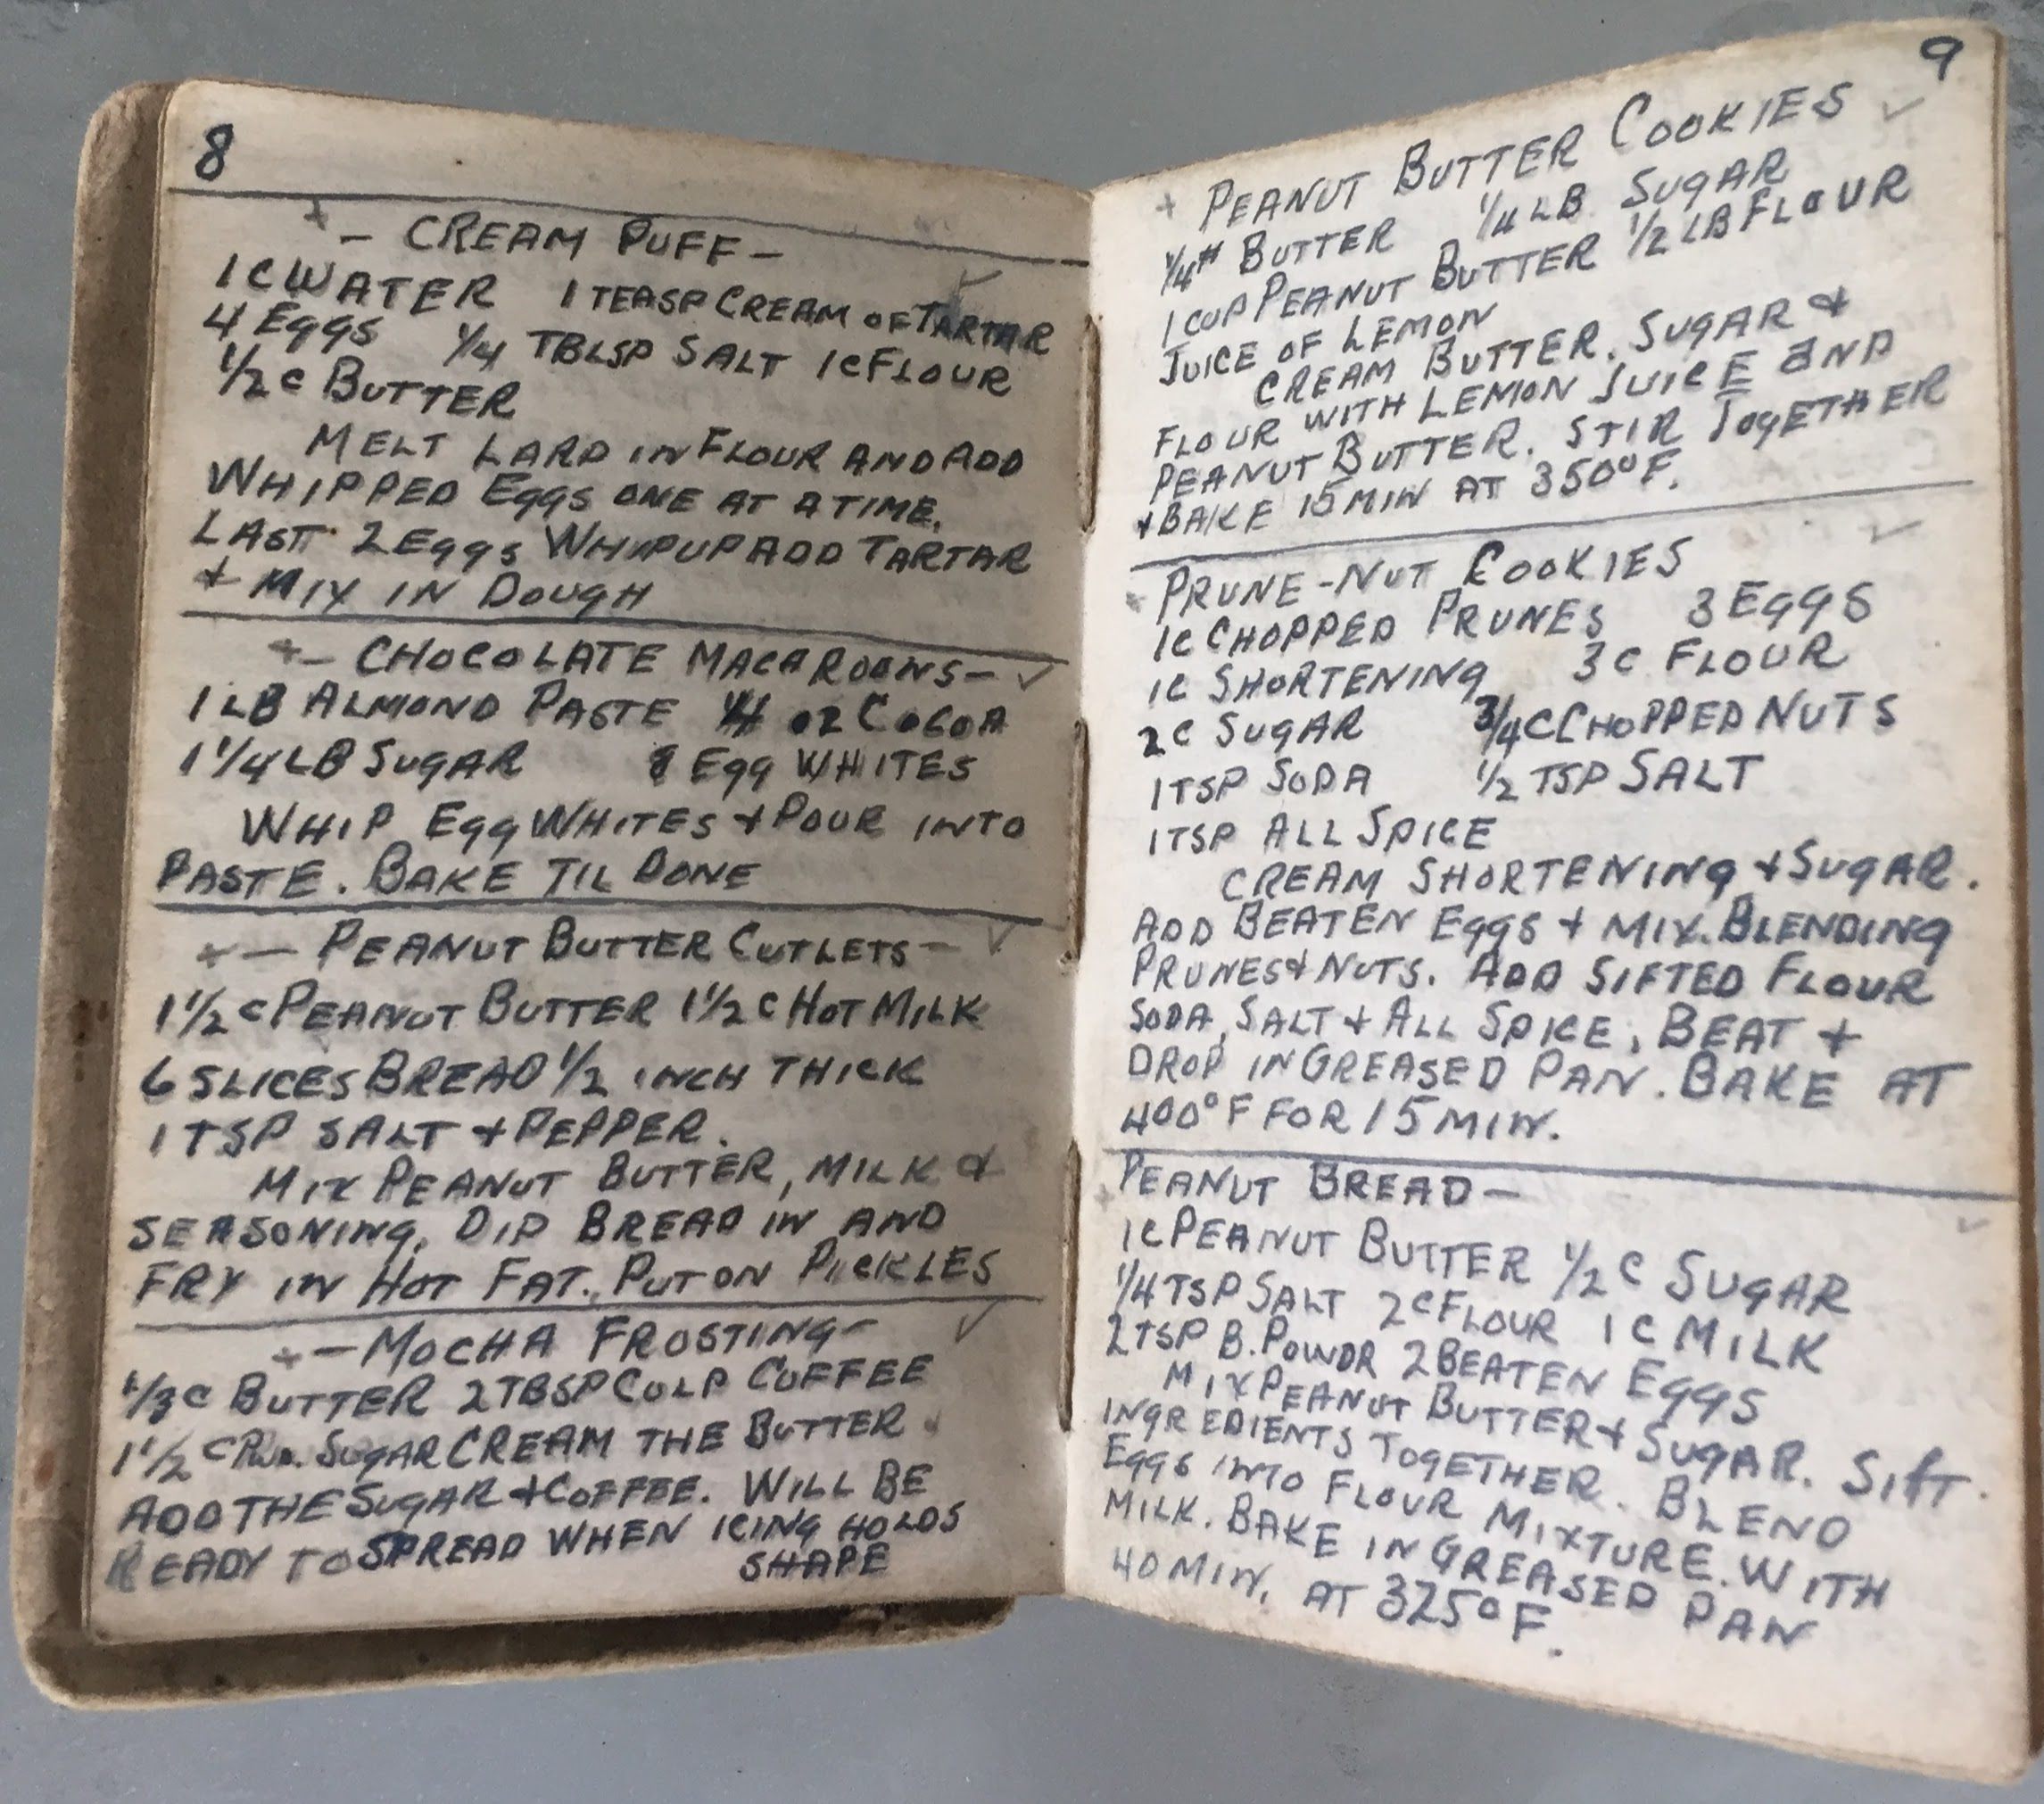 8
- CREAM PUFF -
1 C WATER 1 TEASP CREAM OF TARTAR
4 EggS 1/4 TBLSP SALT 1 C FLOUR
1/2 C BUTTER
MELT LARD IN FLOUR AND ADD
WHIPPED EggS ONE AT A TIME.
LAST 2 EggS WHIP UP ADD TARTAR
+ MIX IN DOUGH
+- CHOCOLATE MACAROONS- ✓
1 LB ALMOND PASTE OZ COCOA
1 1/4 LB SUGAR Egg WHITES
WHIP Egg WHITES + POUR INTO
PASTE. BAKE TIL DONE
+- PEANUT BUTTER CUTLETS- ✓
1 1/2 C PEANUT BUTTER 1 1/2 C HOT MILK
6 SLICES BREAD 1/2 INCH THICK
1 TSP SALT + PEPPER.
MIX PEANUT BUTTER, MILK &
SEASONING. DIP BREAD IN AND
FRY IN HOT FAT. PUT ON PICKLES
+- MOCHA FROSTING- ✓
1/3 C BUTTER 2 TBSP COLD COFFEE
1 1/2 C SUGAR CREAM THE BUTTER
ADD THE SUGAR + COFFEE. WILL BE
READY TO SPREAD WHEN ICING HOLDS
SHAPE
9
+ PEANUT BUTTER COOKIES ✓
1/4# BUTTER 1/4 LB SUGAR
1 CUP PEANUT BUTTER 1/2 LB FLOUR
JUICE OF LEMON
CREAM BUTTER. SUGAR &
FLOUR WITH LEMON JUICE AND
PEANUT BUTTER. STIR TOGETHER
+ BAKE 15 MIN AT 350°F.
+ PRUNE-NUT COOKIES ✓
1C CHOPPED PRUNES 3 EGGS
1C SHORTENING 3 C FLOUR
2C SUGAR 3/4 C CHOPPED NUTS
1 TSP SODA 1/2 TSP SALT
1 TSP ALL SPICE
CREAM SHORTENING + SUGAR.
ADD BEATEN EGGS + MIX. BLENDING
PRUNES + NUTS. ADD SIFTED FLOUR
SODA, SALT + ALL SPICE. BEAT +
DROP IN GREASED PAN. BAKE AT
400°F FOR 15 MIN.
PEANUT BREAD-
1C PEANUT BUTTER 1/2 C SUGAR
1/4 TSP SALT 2 C FLOUR 1 C MILK
2 TSP B. POWDR 2 BEATEN EGGS
MIX PEANUT BUTTER + SUGAR. SIFT
INGREDIENTS TOGETHER. BLEND
EGGS INTO FLOUR MIXTURE. WITH
MILK. BAKE IN GREASED PAN
40 MIN. AT 325°F.